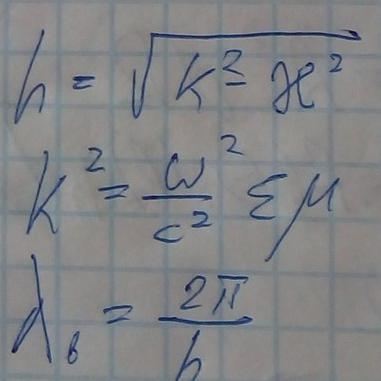 h = √(k² - ϰ²)
k² = ω²/c² εμ
λ_в = 2π/h